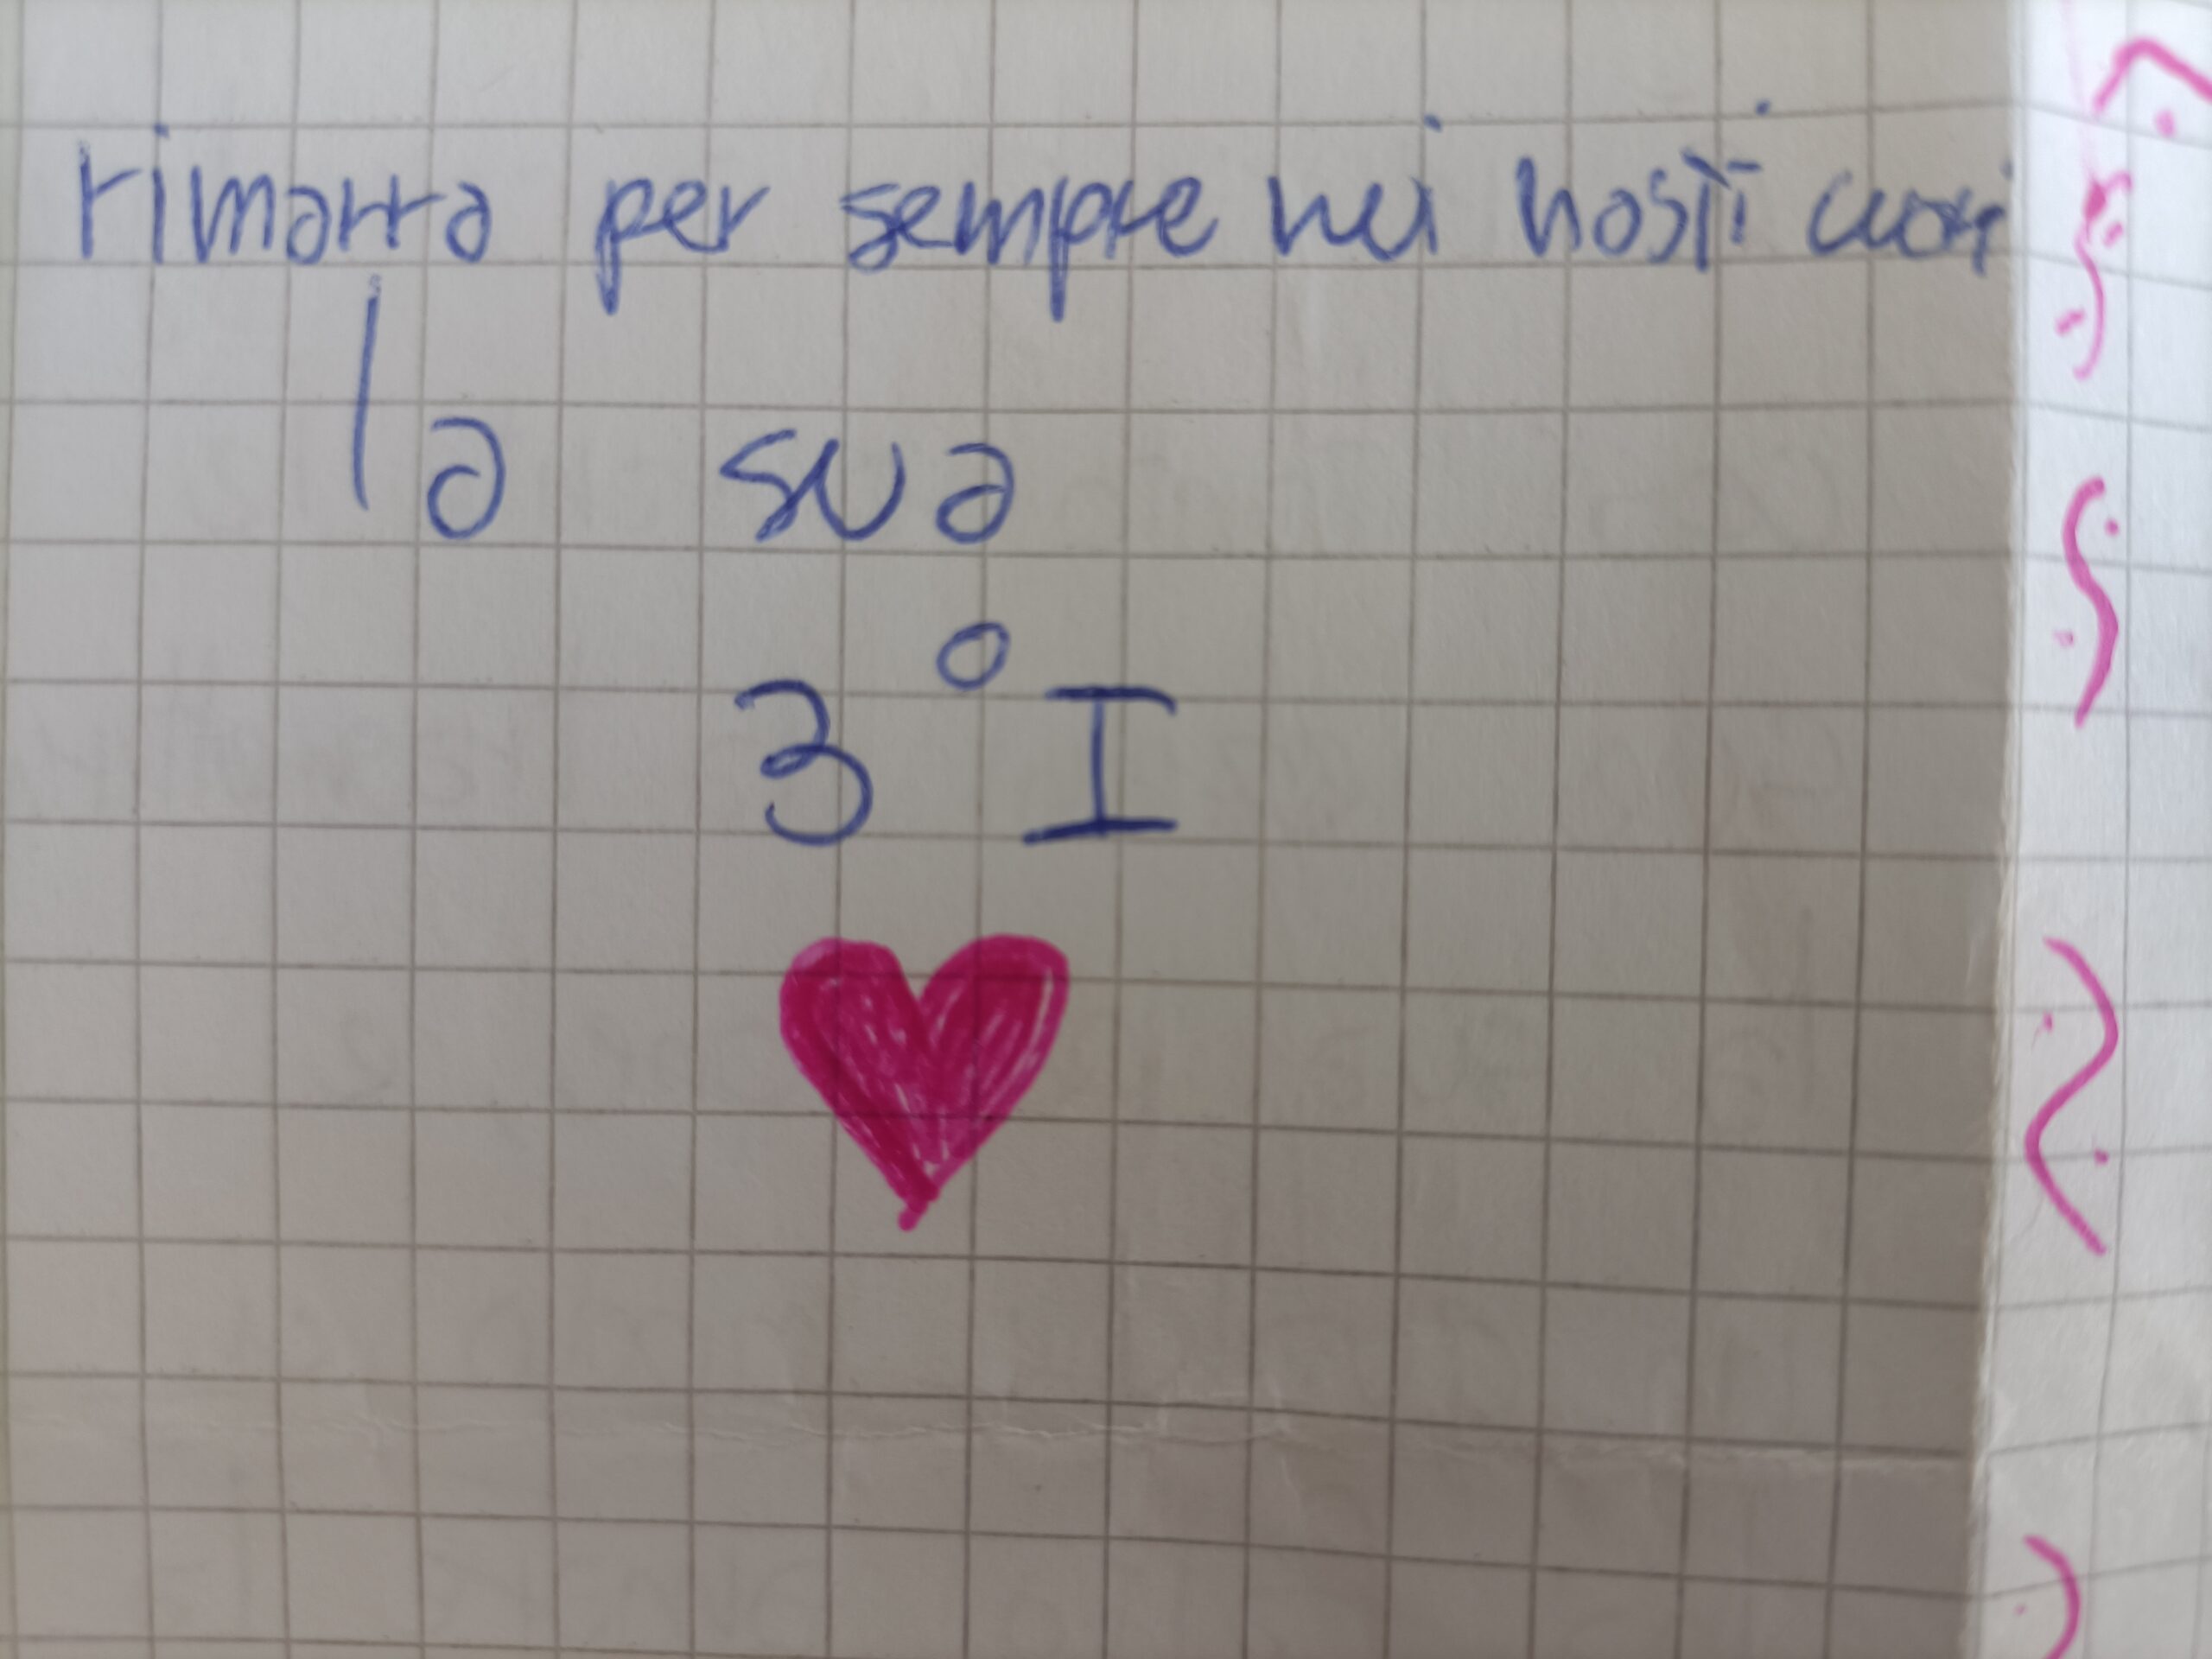 rimarra per sempre nei nostri cuori
la sua
3° I